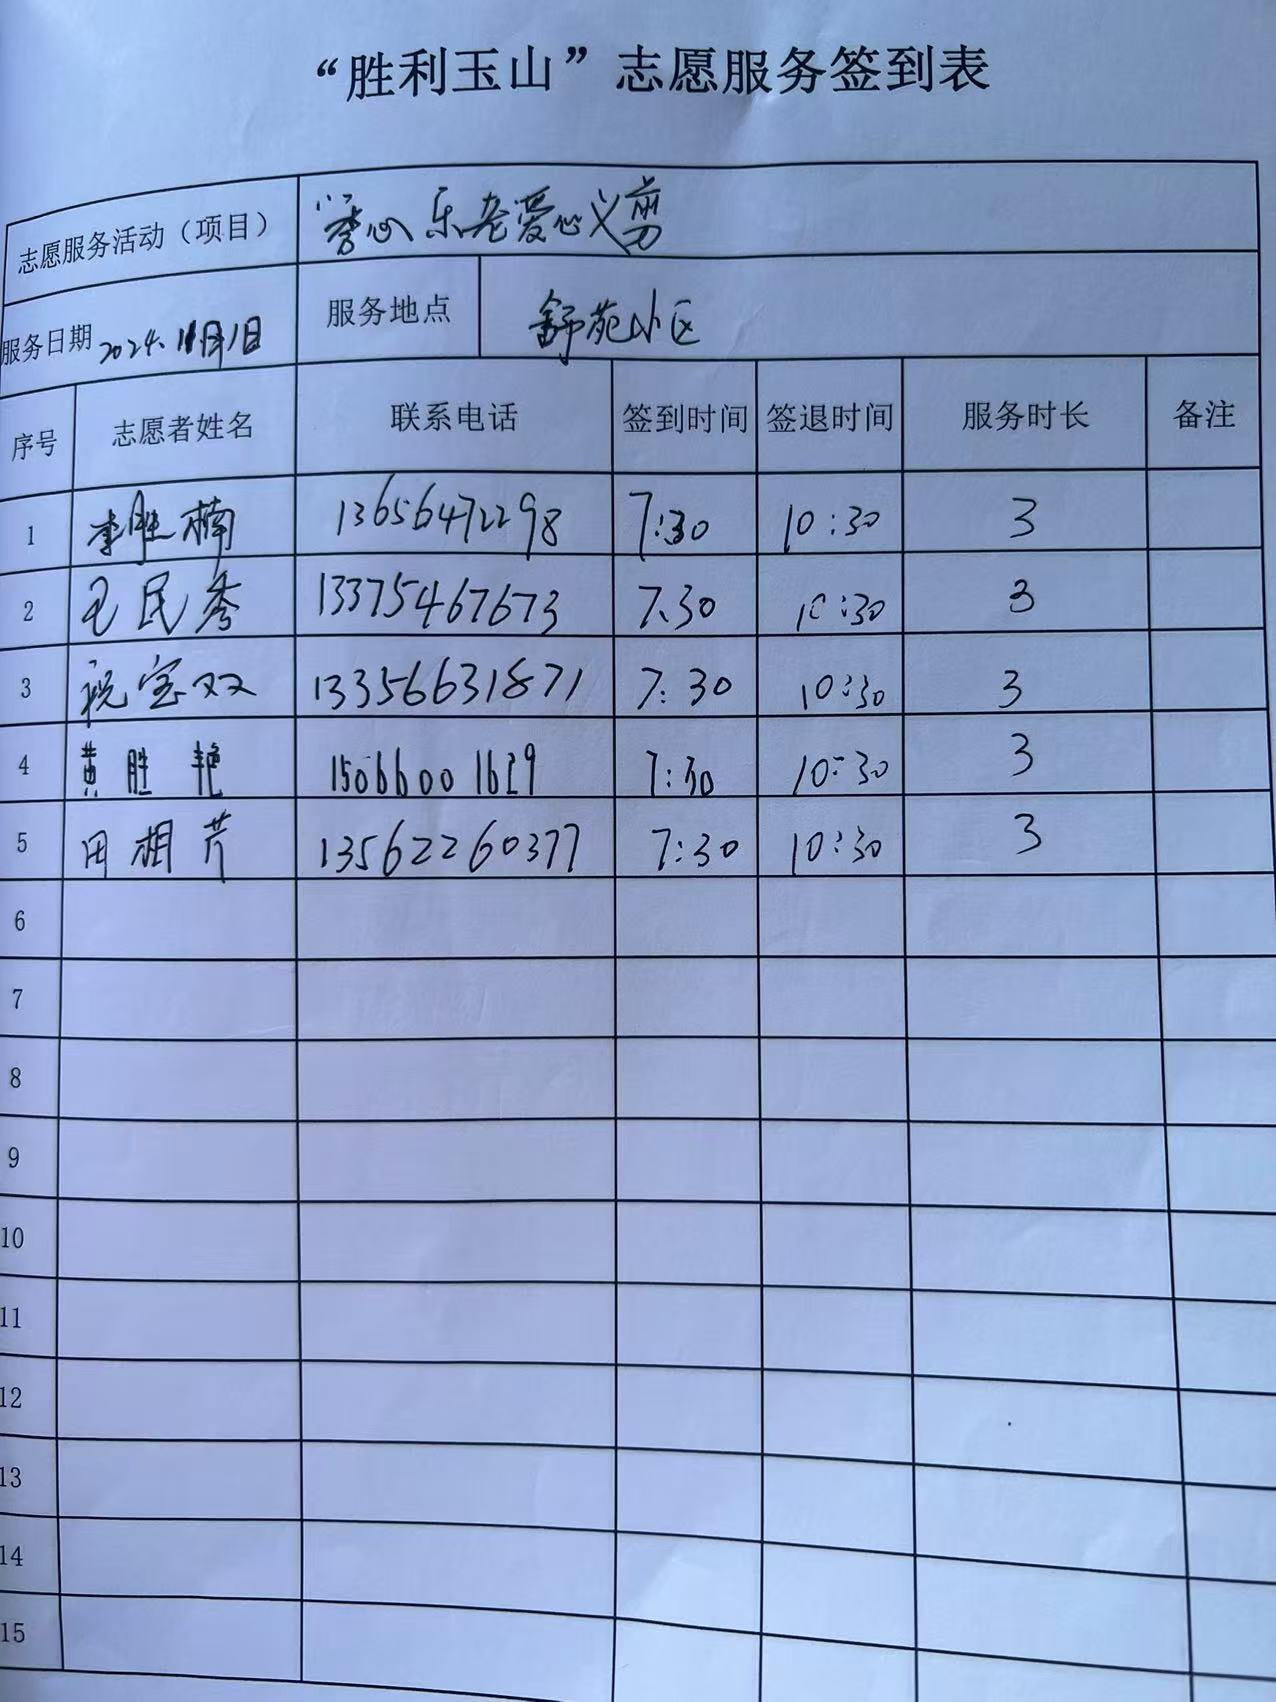 “胜利玉山”志愿服务签到表
志愿服务活动（项目） 乐老爱心义剪
服务日期 2024.11月1日 服务地点 舒苑小区
序号 志愿者姓名 联系电话 签到时间 签退时间 服务时长 备注
1 李胜楠 13656472298 7:30 10:30 3
2 毛民秀 13375467673 7.30 10:30 3
3 祝宝双 13356631871 7:30 10:30 3
4 黄胜艳 15066001629 7:30 10:30 3
5 田相芹 13562260377 7:30 10:30 3
6
7
8
9
10
11
12
13
14
15